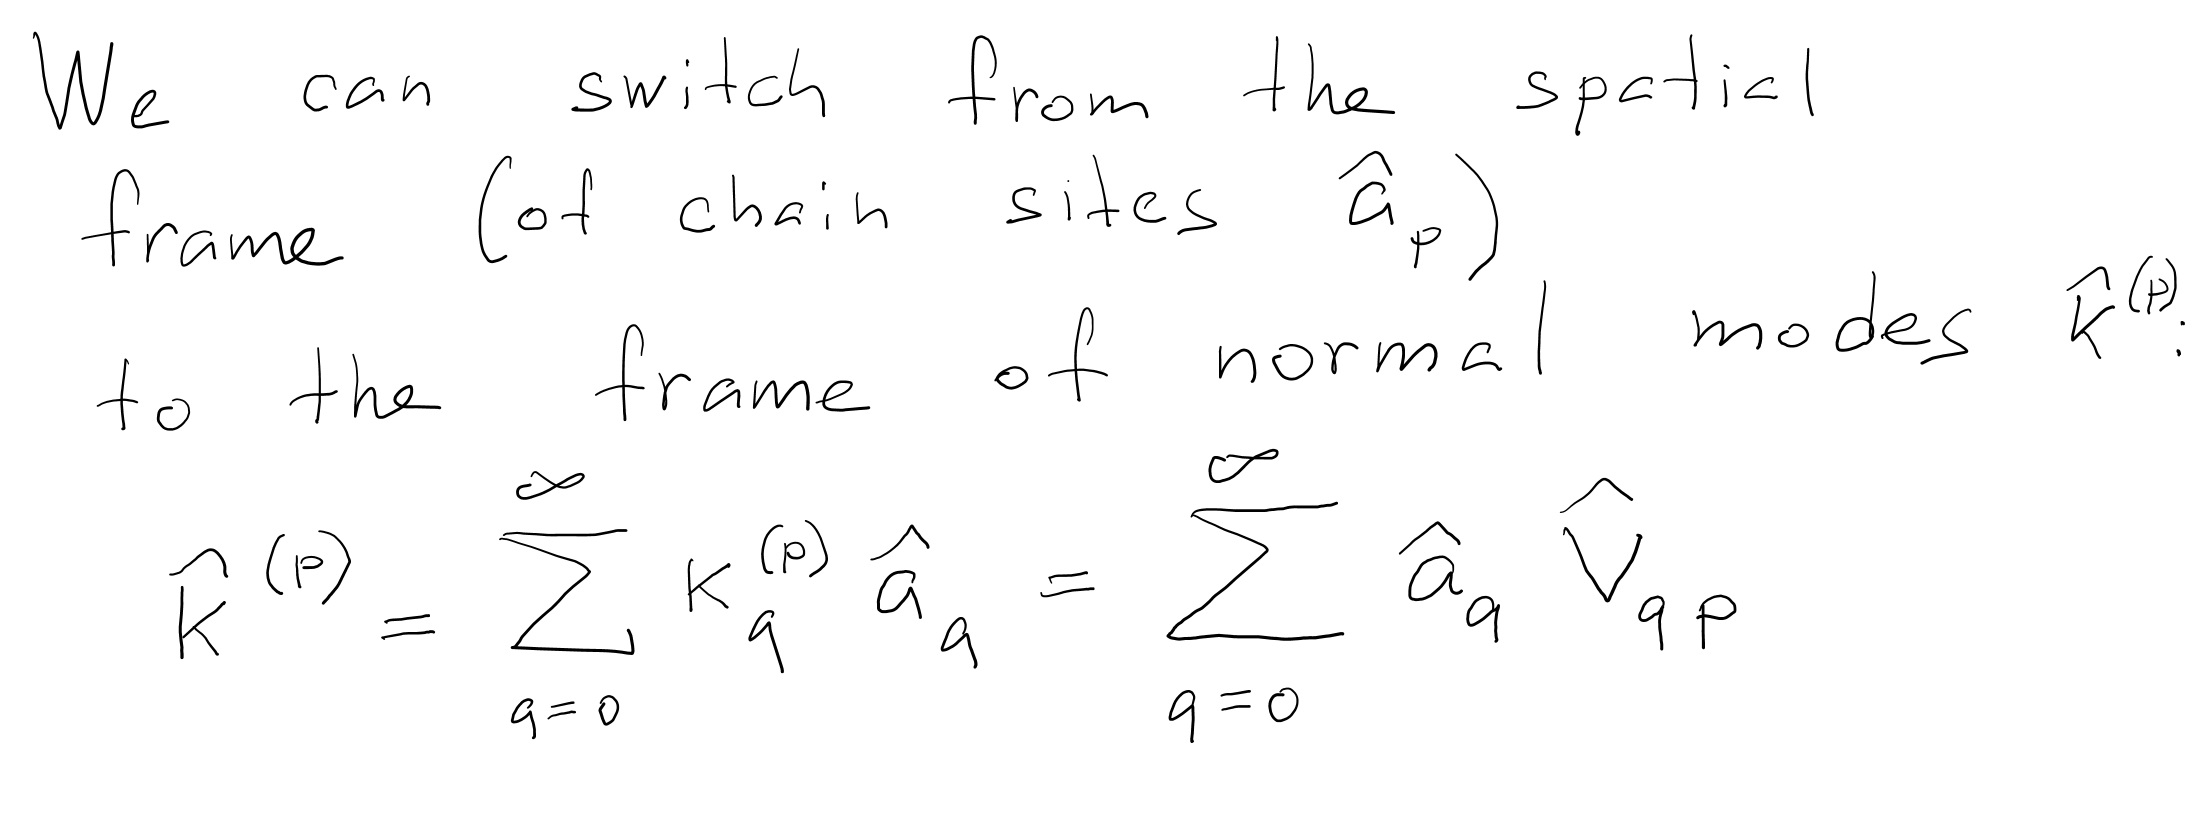 We can switch from the spatial
frame (of chain sites $\hat{a}_p$)
to the frame of normal modes $\hat{k}^{(p)}$:
$\hat{k}^{(p)} = \sum_{q=0}^{\infty} k_q^{(p)} \hat{a}_q = \sum_{q=0}^{\infty} \hat{a}_q \hat{V}_{qp}$